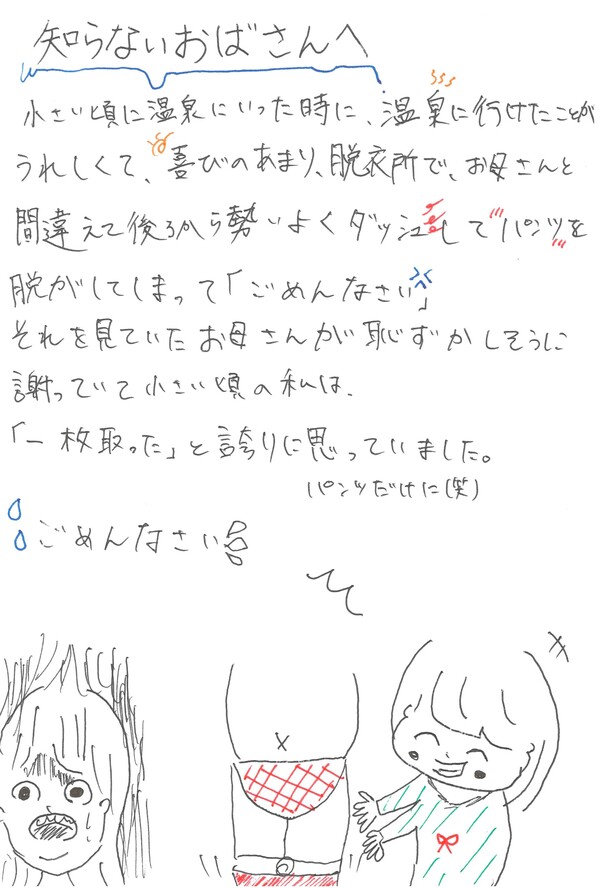 知らないおばさんへ
小さい頃に温泉にいった時に、温泉に行けたことが
うれしくて、喜びのあまり、脱衣所で、お母さんと
間違えて後ろから勢いよくダッシュしてパンツを
脱がしてしまって「ごめんなさい」
それを見ていたお母さんが恥ずかしそうに
謝っていて小さい頃の私は、
「一枚取った」と誇りに思っていました。
パンツだけに(笑)
ごめんなさい